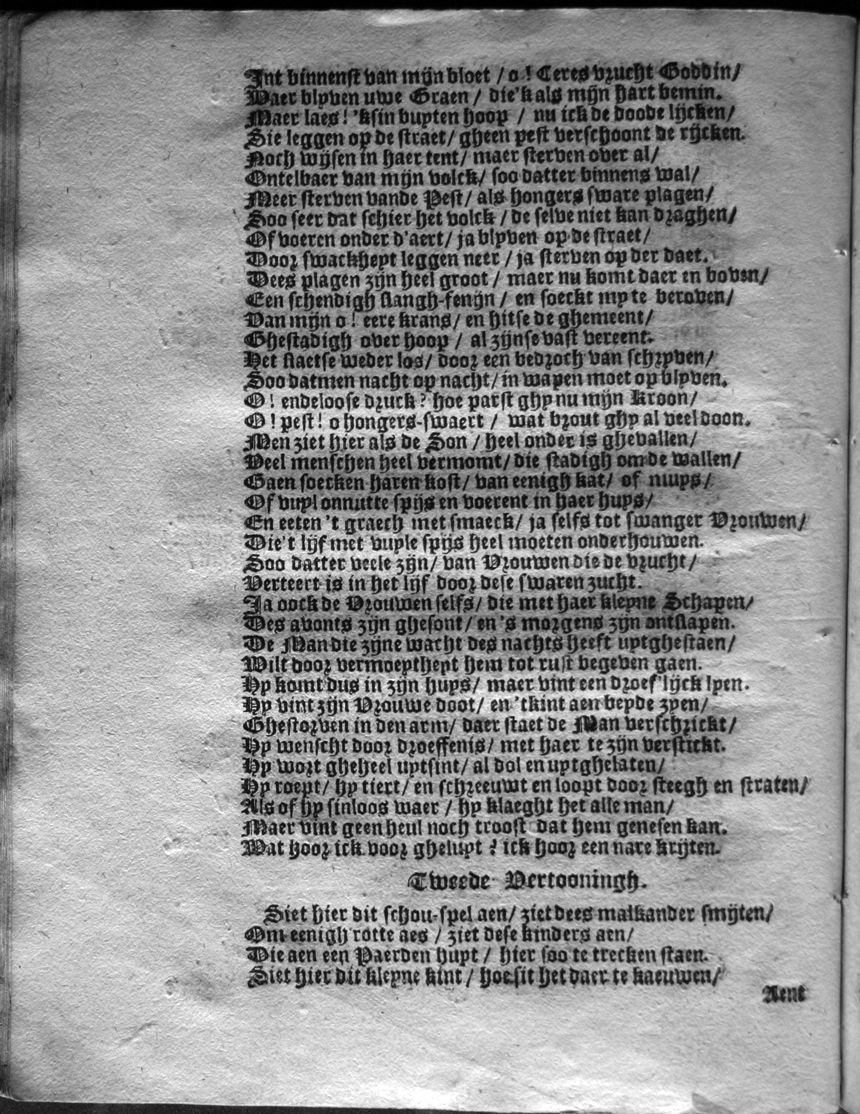 Int binnenst van mijn bloet / o! Ceres vrucht Goddin/
Waer blyven uwe Graen / die'k als mijn hart bemin.
Maer laes! 'ksin buyten hoop / nu ick de doode lijcken/
Sie leggen op de straet/ gheen pest verschoont de rijcken.
Noch wijsen in haer tent/ maer sterven over al/
Ontelbaer van mijn volck/ soo datter binnens wal/
Meer sterven vande Pest/ als hongers sware plagen/
Soo seer dat schier het volck / de selve niet kan draghen/
Of voeren onder d'aert/ ja blyven op de straet/
Door swackheyt leggen neer / ja sterven op der daet.
Dees plagen zijn heel groot / maer nu komt daer en boven/
Een schendigh slangh-fenijn / en soeckt my te beroven/
Van mijn o! eere krans/ en hitse de ghemeent/
Ghestadigh over hoop / al zijnse vast vereent.
Het slaetse weder los/ door een bedroch van schryven/
Soo datmen nacht op nacht/ in wapen moet op blyven.
O! endeloose druck? hoe parst ghy nu mijn Kroon/
O! pest! o hongers-swaert / wat brout ghy al veel doon.
Men ziet hier als de Son / heel onder is ghevallen/
Veel menschen heel vermomt/ die stadigh om de wallen/
Gaen soecken haren kost/ van eenigh kat/ of muys/
Of vuyl onnutte spijs en voerent in haer huys/
En eeten 't graech met smaeck/ ja selfs tot swanger Vrouwen/
Die't lijf met vuyle spijs heel moeten onderhouwen.
Soo datter veele zijn/ van Vrouwen die de vrucht/
Verteert is in het lijf door dese swaren zucht.
Ja oock de Vrouwen selfs/ die met haer kleyne Schapen/
Des avonts zijn ghesont/ en 's morgens zijn ontslapen.
De Man die zijne wacht des nachts heeft uytghestaen/
Wilt door vermoeytheyt hem tot rust begeven gaen.
Hy komt dus in zijn huys/ maer vint een droef'lijck lyen.
Hy vint zijn Vrouwe doot/ en 'tkint aen beyde zyen/
Ghestorven in den arm/ daer staet de Man verschrickt/
Hy wenscht door droeffenis/ met haer te zijn verstickt.
Hy wort gheheel uytsint/ al dol en uytghelaten/
Hy roept/ hy tiert/ en schreeuwt en loopt door steegh en straten/
Als of hy sinloos waer / hy klaeght het alle man/
Maer vint geen heul noch troost dat hem genesen kan.
Wat hoor ick voor gheluyt? ick hoor een nare krijten.
Tweede Vertooningh.
Siet hier dit schou-spel aen/ ziet dees malkander smijten/
Om eenigh rotte aes / ziet dese kinders aen/
Die aen een Paerden huyt / hier soo te trecken staen.
Siet hier dit kleyne kint / hoe sit het daer te kaeuwen/
Aent